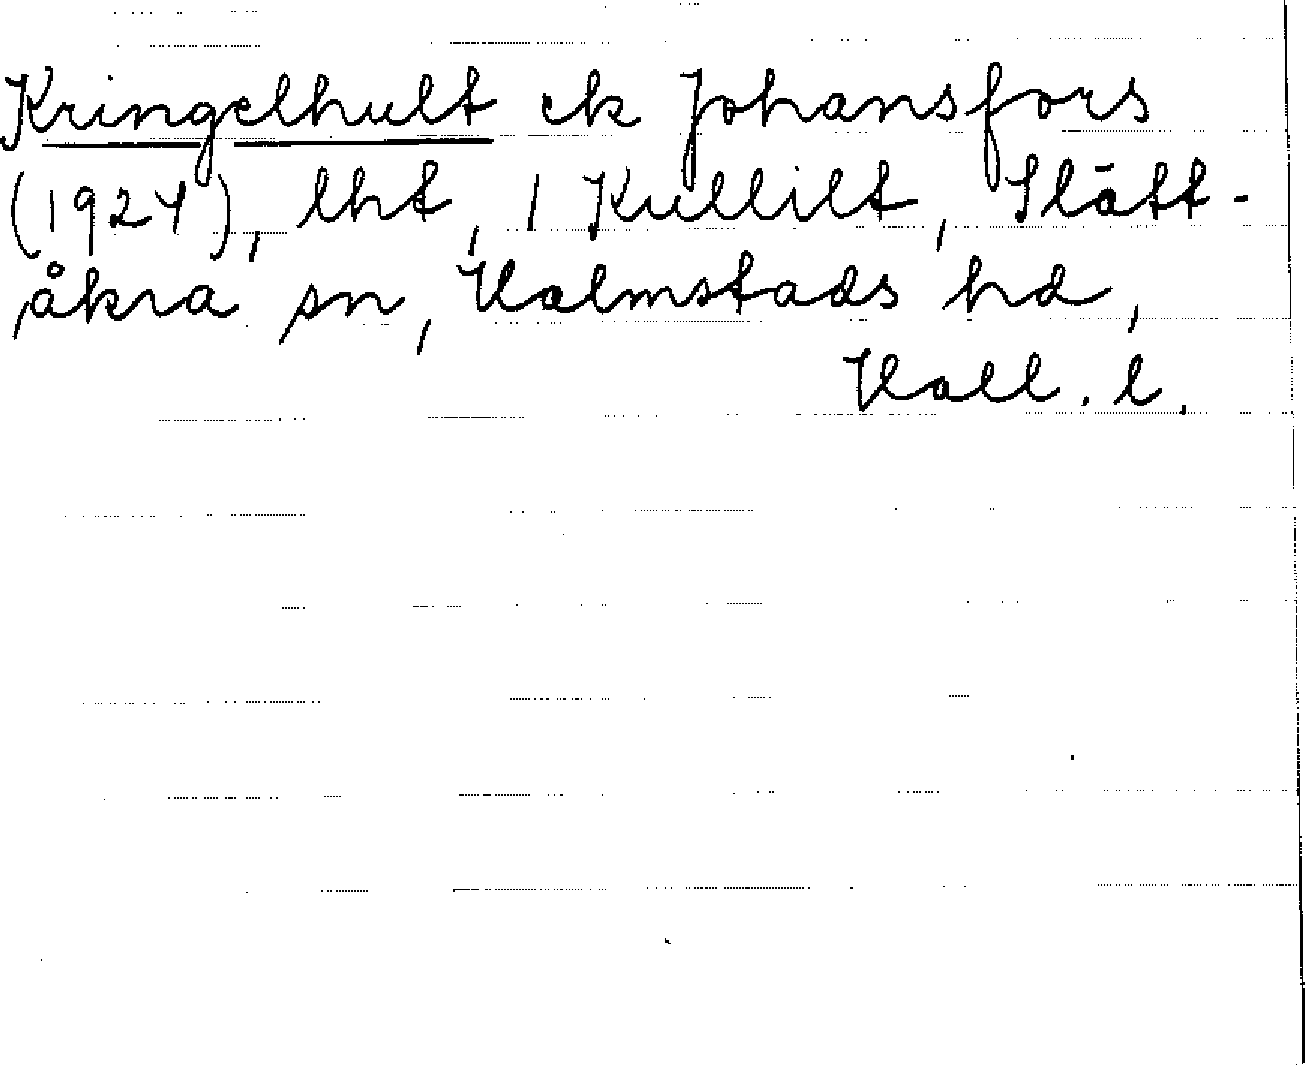 Kringelhult ek Johansfors
(1924), lht, 1 Kullilt, Slätt-
åkra sn, Halmstads hd,
Hall. l.